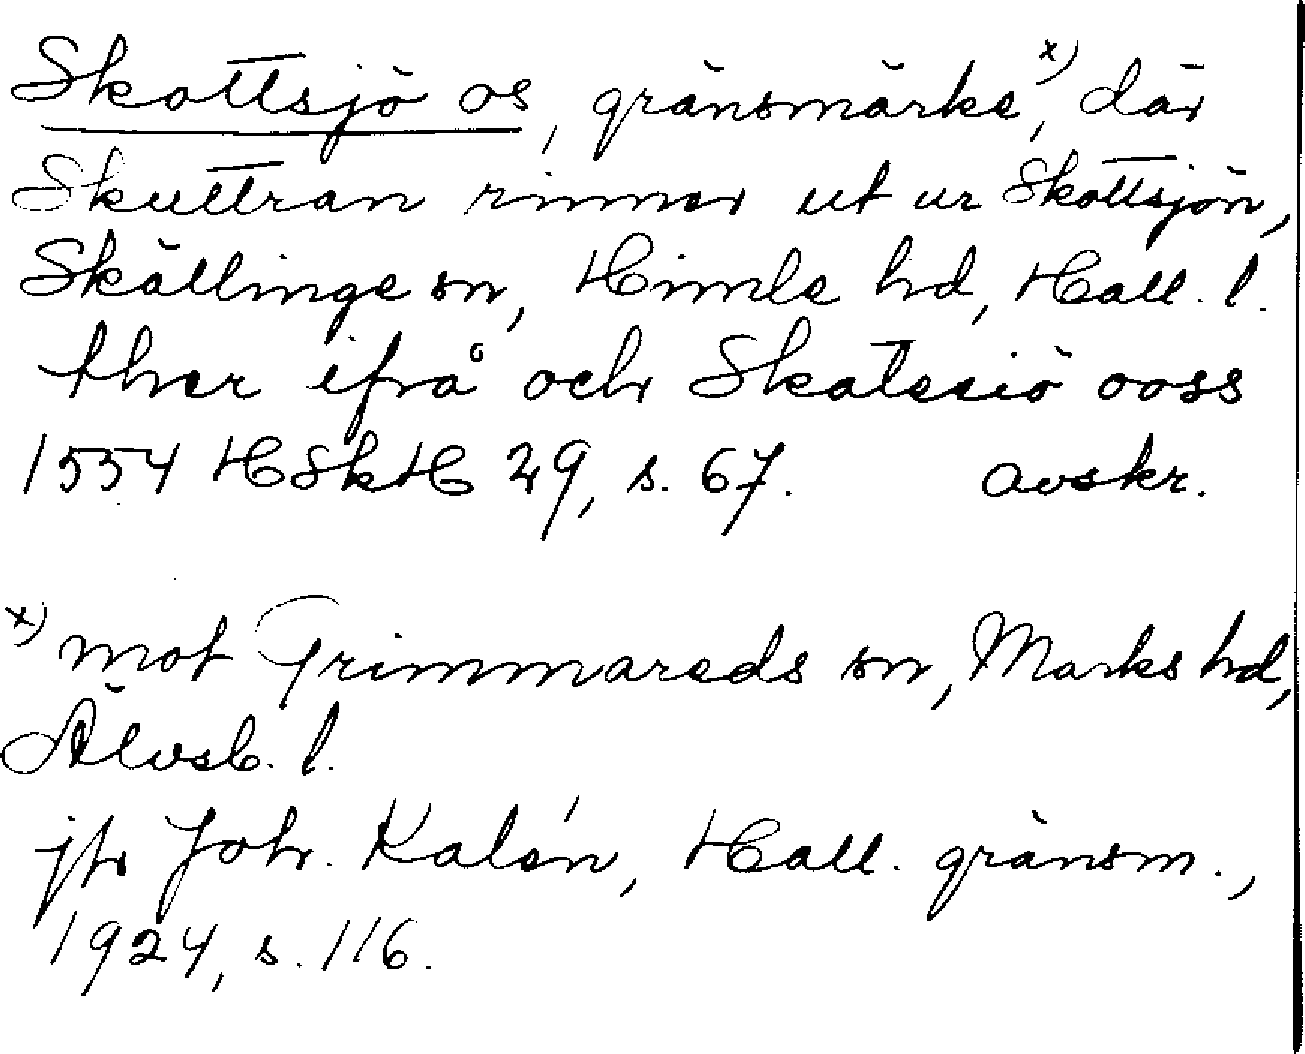 Skottsjö os, gränsmärke,ˣ⁾ där
Skuttran rinner ut ur Skottsjön,
Skällinge sn, Himle hd, Hall. l.
ther ifrå och Skatesiö ooss
1554 HSkH 29, s. 67. avskr.
ˣ⁾ mot Grimmareds sn, Marks hd,
Älvsb. l.
jfr Joh. Kalén, Hall. gränsm.,
1924, s. 116.